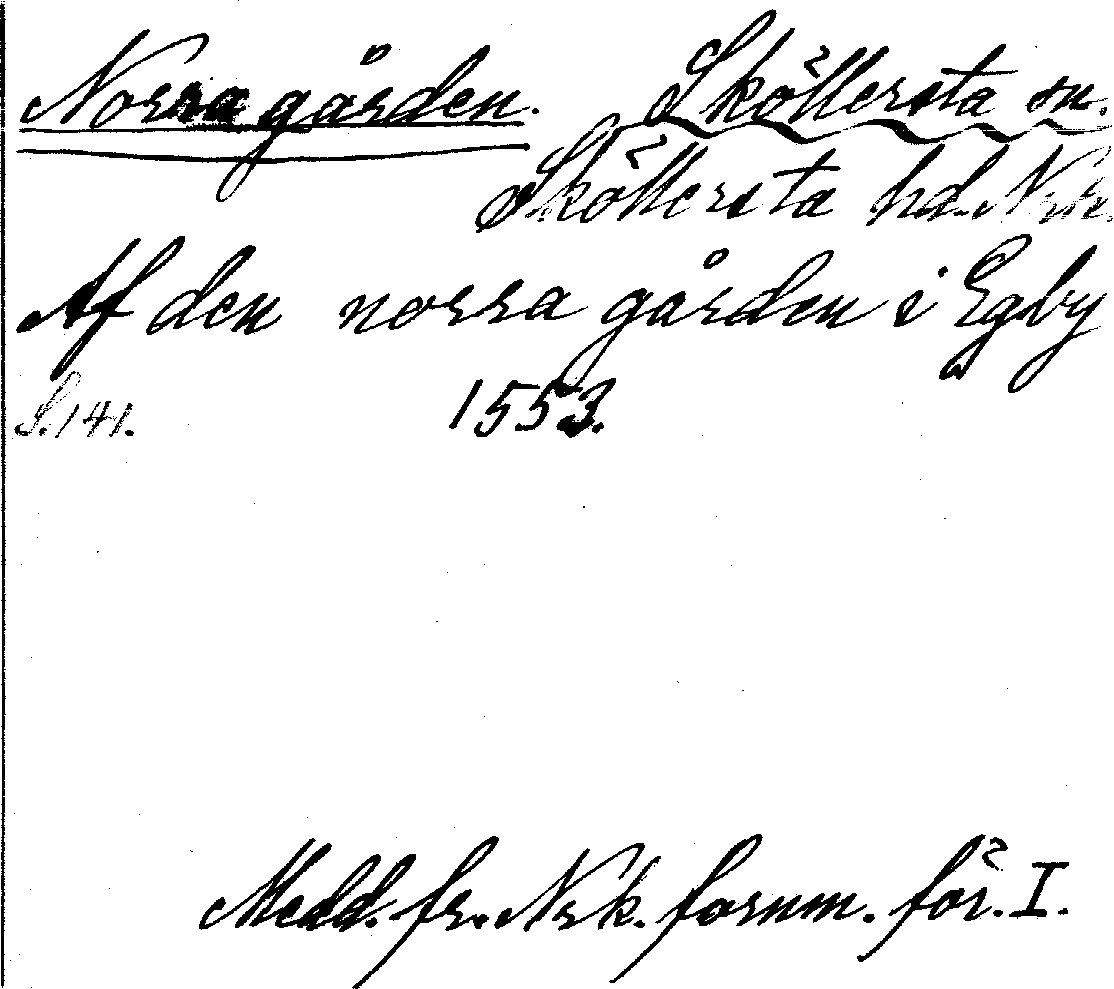 Norra gården. Sköllersta sn.
Sköllersta hd. Nrk.
Af den norra gården i Egby
S. 141. 1553.
Medd. fr. Nrk. fornm. för. I.